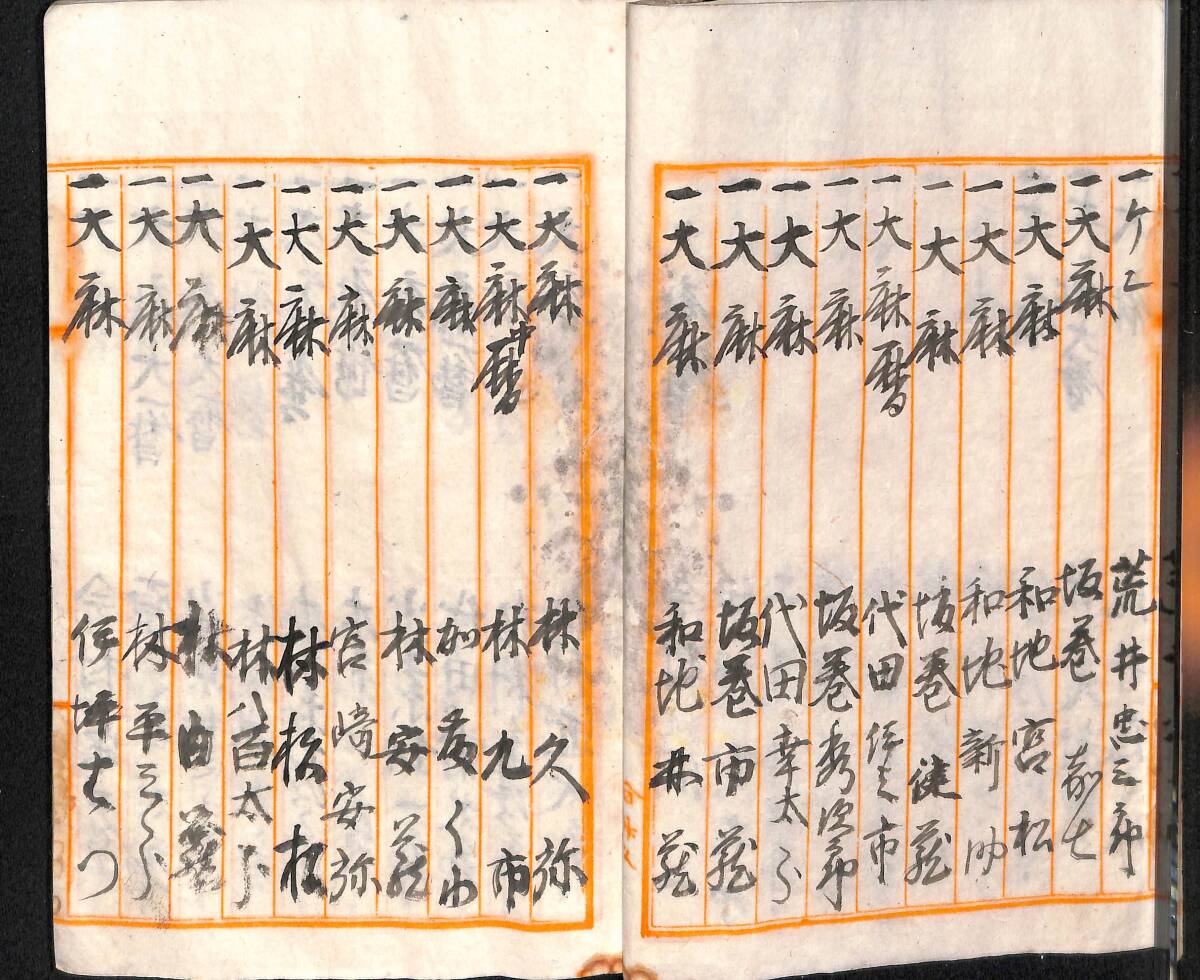 一ケ二 荒井忠三郎
一大麻 坂巻嘉七
一大麻 和地宮松
一大麻 和地新
一大麻 坂巻健蔵
一大麻暦 代田伊之市
一大麻 坂巻秀次郎
一大麻 代田幸太郎
一大麻 坂巻市蔵
一大麻 和地
一大麻 林久弥
一大麻中暦 林九市
一大麻
一大麻 林安蔵
一大麻 宮崎安弥
一大麻 村松松
一大麻 林八百太郎
一大麻 林由蔵
一大麻 林平三郎
一大麻